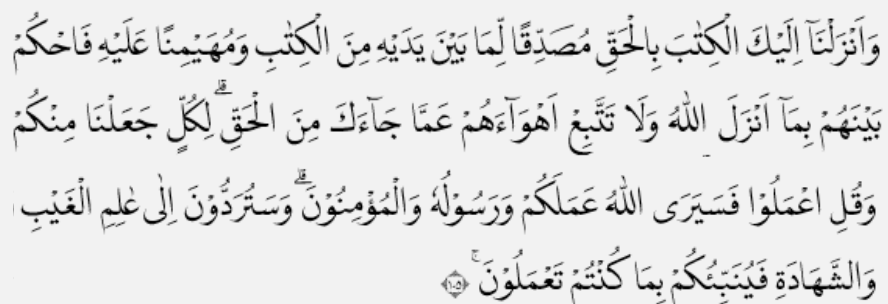 وَاَنْزَلْنَآ اِلَيْكَ الْكِتٰبَ بِالْحَقِّ مُصَدِّقًا لِّمَا بَيْنَ يَدَيْهِ مِنَ الْكِتٰبِ وَمُهَيْمِنًا عَلَيْهِ فَاحْكُمْ
بَيْنَهُمْ بِمَآ اَنْزَلَ اللّٰهُ وَلَا تَتَّبِعْ اَهْوَآءَهُمْ عَمَّا جَآءَكَ مِنَ الْحَقِّۗ لِكُلٍّ جَعَلْنَا مِنْكُمْ
وَقُلِ اعْمَلُوْا فَسَيَرَى اللّٰهُ عَمَلَكُمْ وَرَسُوْلُهٗ وَالْمُؤْمِنُوْنَۗ وَسَتُرَدُّوْنَ اِلٰى عٰلِمِ الْغَيْبِ
وَالشَّهَادَةِ فَيُنَبِّئُكُمْ بِمَا كُنْتُمْ تَعْمَلُوْنَۚ ۝١٠٥